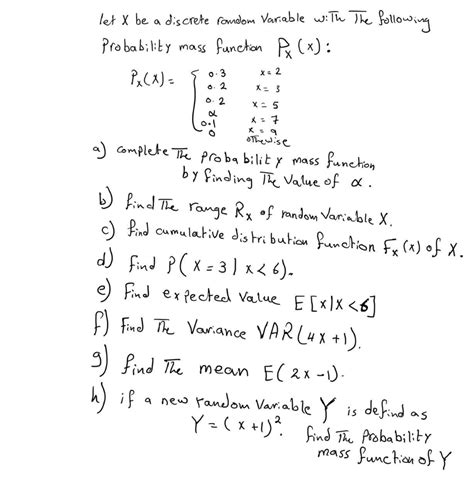 let X be a discrete random Variable with The following
Probability mass function Px(x):
Px(x) = { 0.3 x=2
0.2 x=3
0.2 x=5
α x=7
0.1 x=9
0 otherwise
a) complete The probability mass function
by finding The Value of α.
b) find The range Rx of random Variable X.
c) find cumulative distribution function Fx(x) of X.
d) find P(X=3|X<6).
e) Find expected Value E[X|X<6]
f) Find The Variance VAR(4X+1).
g) find The mean E(2X-1).
h) if a new random Variable Y is defind as
Y=(X+1)². find The Probability
mass function of Y